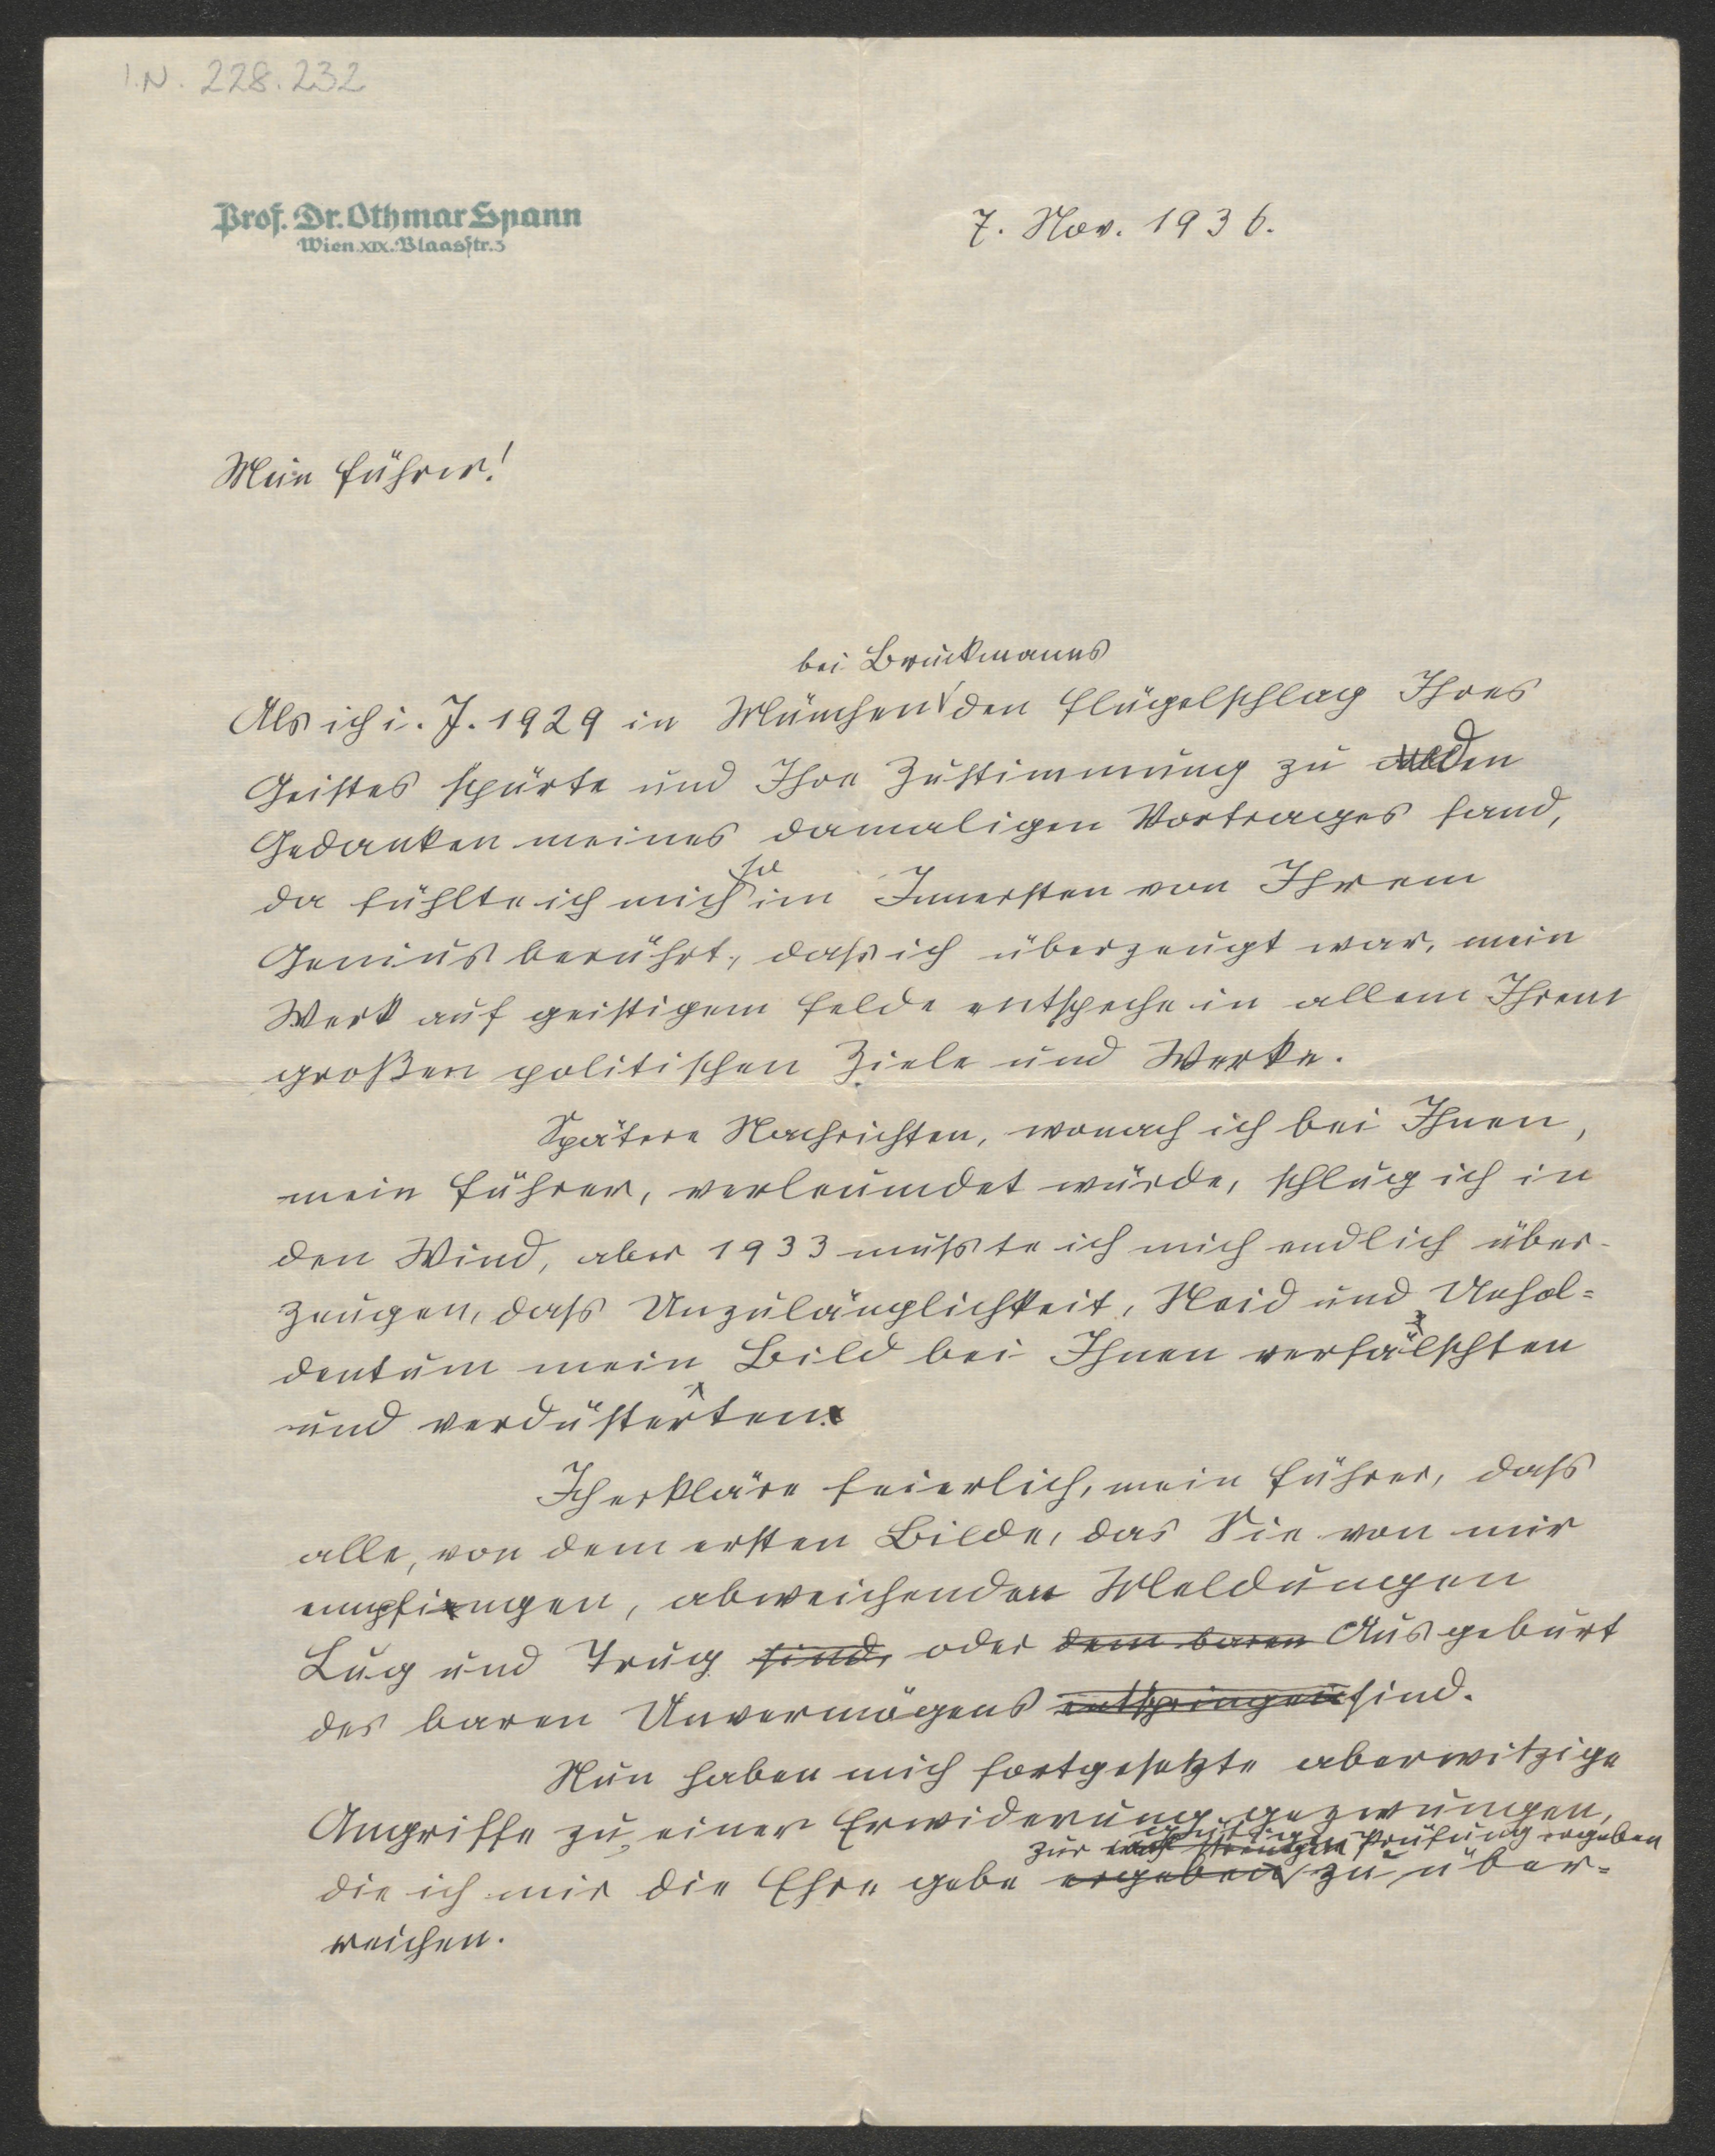 I.N. 228.232
Prof. Dr. Othmar Spann
Wien XIX. Blaasstr. 3
7. Nov. 1936.
Mein Führer!
bei Bruckmanns
Als ich i. J. 1929 in München den Flügelschlag Ihres
Geistes spürte und Ihre Zustimmung zu den
Gedanken meines damaligen Vortrages fand,
so
da fühlte ich mich im Innersten von Ihrem
Genius berührt, dass ich überzeugt war, mein
Werk auf geistigem Felde entspeche in allem Ihrem
großen politischen Ziele und Werke.
Spätere Nachrichten, wonach ich bei Ihnen,
mein Führer, verleumdet würde, schlug ich in
den Wind, aber 1933 musste ich mich endlich über-
zeugen, dass Unzulänglichkeit, Neid und Unhol-
dentum mein Bild bei Ihnen verfälschten
und verdüsterten.
Ich erkläre feierlich, mein Führer, dass
alle, von dem ersten Bilde, das Sie von mir
empfingen, abweichenden Meldungen
Lug und Trug sind, oder dem baren Ausgeburt
des baren Unvermögens entspringen sind.
Nun haben mich fortgesetzte aberwitzige
Angriffe zu einer Erwiderung gezwungen,
gütigen
zur Prüfung ergeben
die ich mir die Ehre gebe ergeben zu über-
reichen.